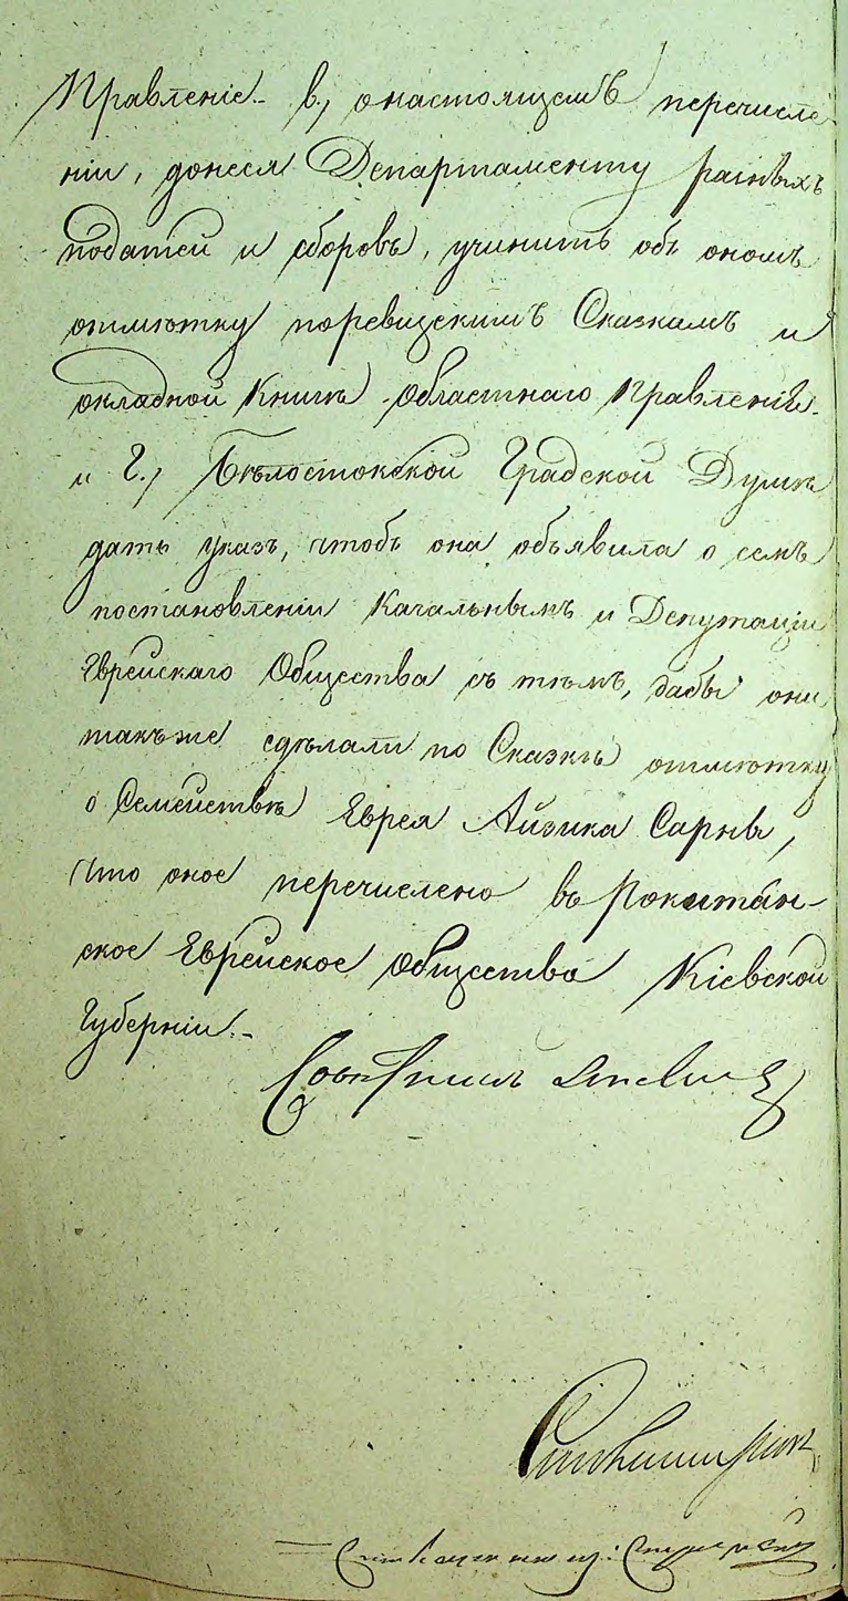 Правленіе. в., о настоящемъ перечисле
ніи, донеся Департаменту разныхъ
податей и сборовъ, учинить объ ономъ
отмѣтку по ревизскимъ Сказкамъ и
окладной Книгѣ Областнаго Правленія.
и Г., Бѣлостокской Градской Думѣ
дать указъ, чтобъ она объявила о семъ
постановленіи Кагальнымъ и Депутаціи
Еврейскаго Общества съ тѣмъ, дабы они
такъже сдѣлали по Сказкѣ отмѣтку
о Семействѣ Еврея Айзика Сарны,
что оное перечислено въ Рокитан-
ское Еврейское Общество Кіевской
Губерніи.